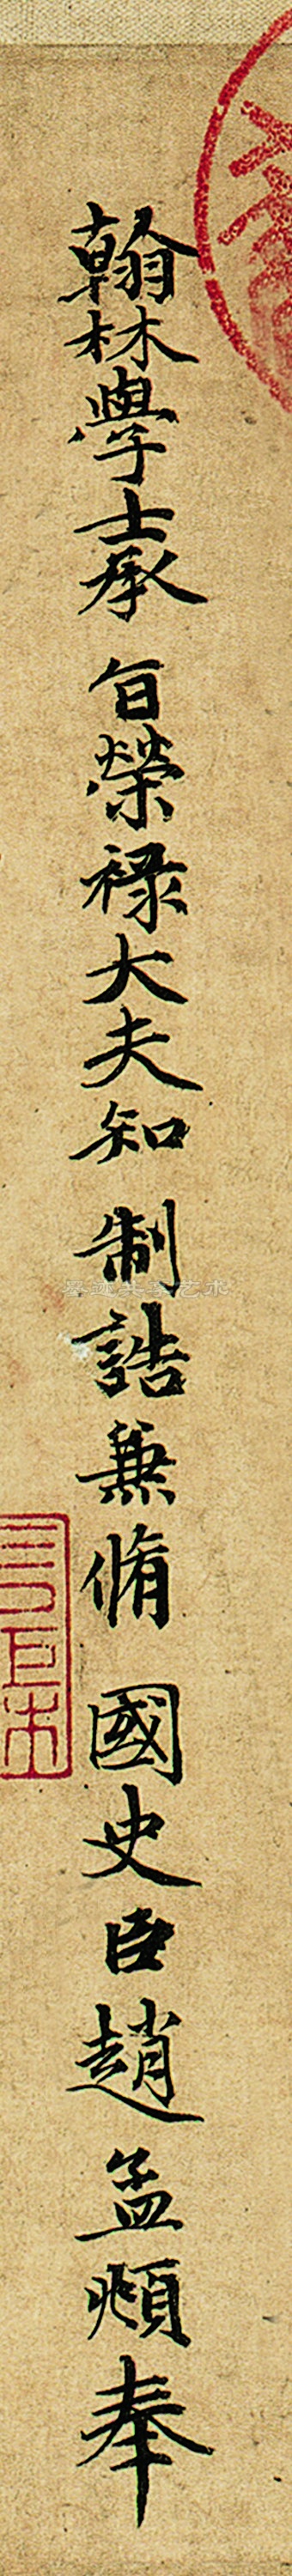 翰林學士承旨榮祿大夫知制誥兼脩國史臣趙孟頫奉